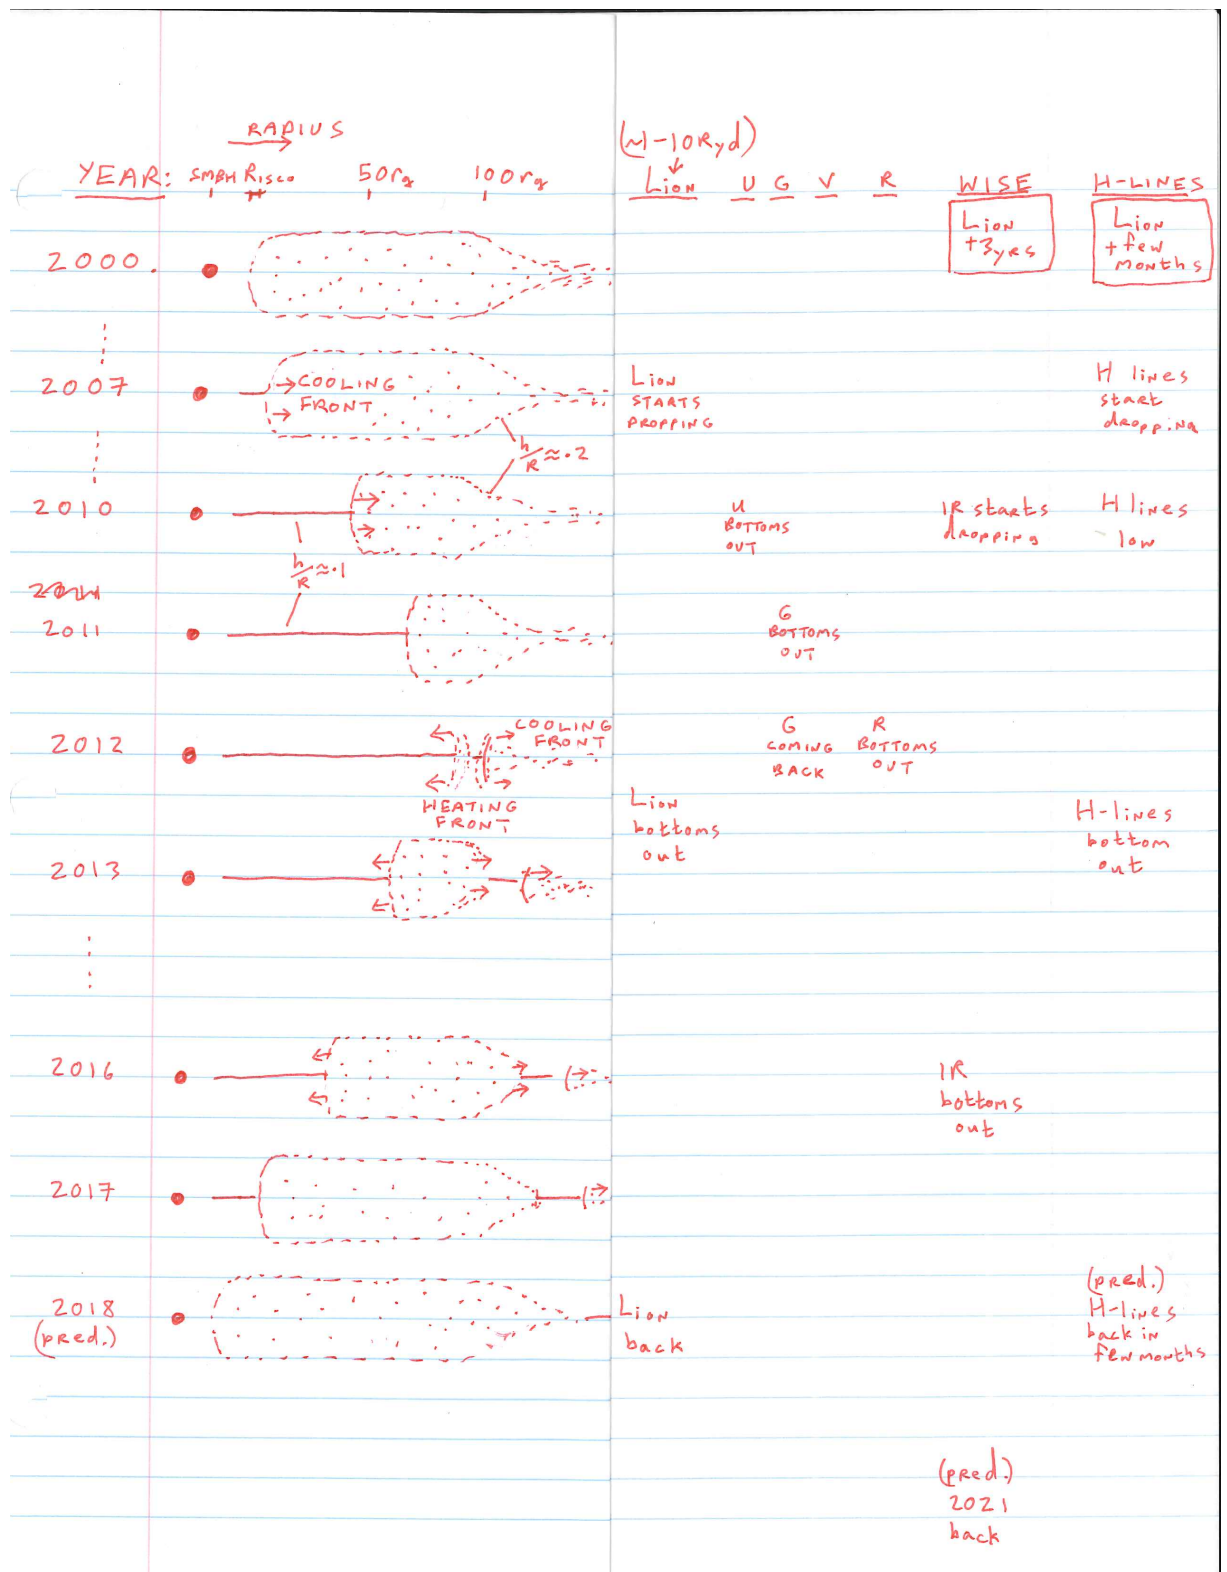 RADIUS
(~1-10Ryd)
YEAR: SMBH RISCO 50rg 100rg LION U G V R WISE H-LINES
2000.
LION
+3yrs
LION
+ few
months
2007
COOLING
FRONT
LION
STARTS
DROPPING
H lines
start
dropping
h/R ≈ .2
2010
U
BOTTOMS
OUT
IR starts
dropping
H lines
low
h/R ≈ .1
2011
G
BOTTOMS
OUT
2012
COOLING
FRONT
HEATING
FRONT
G
COMING
BACK
R
BOTTOMS
OUT
LION
bottoms
out
H-lines
bottom
out
2013
2016
IR
bottoms
out
2017
2018
(pred.)
LION
back
(pred.)
H-lines
back in
few months
(pred.)
2021
back